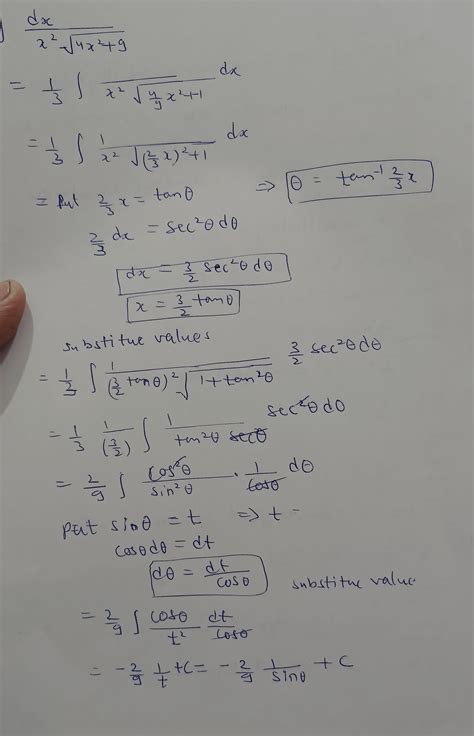 dx / x² √4x²+9
= 1/3 ∫ 1 / x² √4/9 x²+1 dx
= 1/3 ∫ 1 / x² √(2/3 x)²+1 dx
= Put 2/3 x = tanθ ⇒ θ = tan⁻¹ 2/3 x
2/3 dx = sec²θ dθ
dx = 3/2 sec²θ dθ
x = 3/2 tanθ
substitue values
= 1/3 ∫ 1 / (3/2 tanθ)² √1+tan²θ 3/2 sec²θ dθ
= 1/3 1/(3/2) ∫ 1 / tan²θ secθ sec²θ dθ
= 2/9 ∫ cos²θ / sin²θ · 1/cosθ dθ
put sinθ = t ⇒ t -
cosθ dθ = dt
dθ = dt/cosθ substitue value
= 2/9 ∫ cosθ/t² dt/cosθ
= -2/9 1/t + C = -2/9 1/sinθ + C